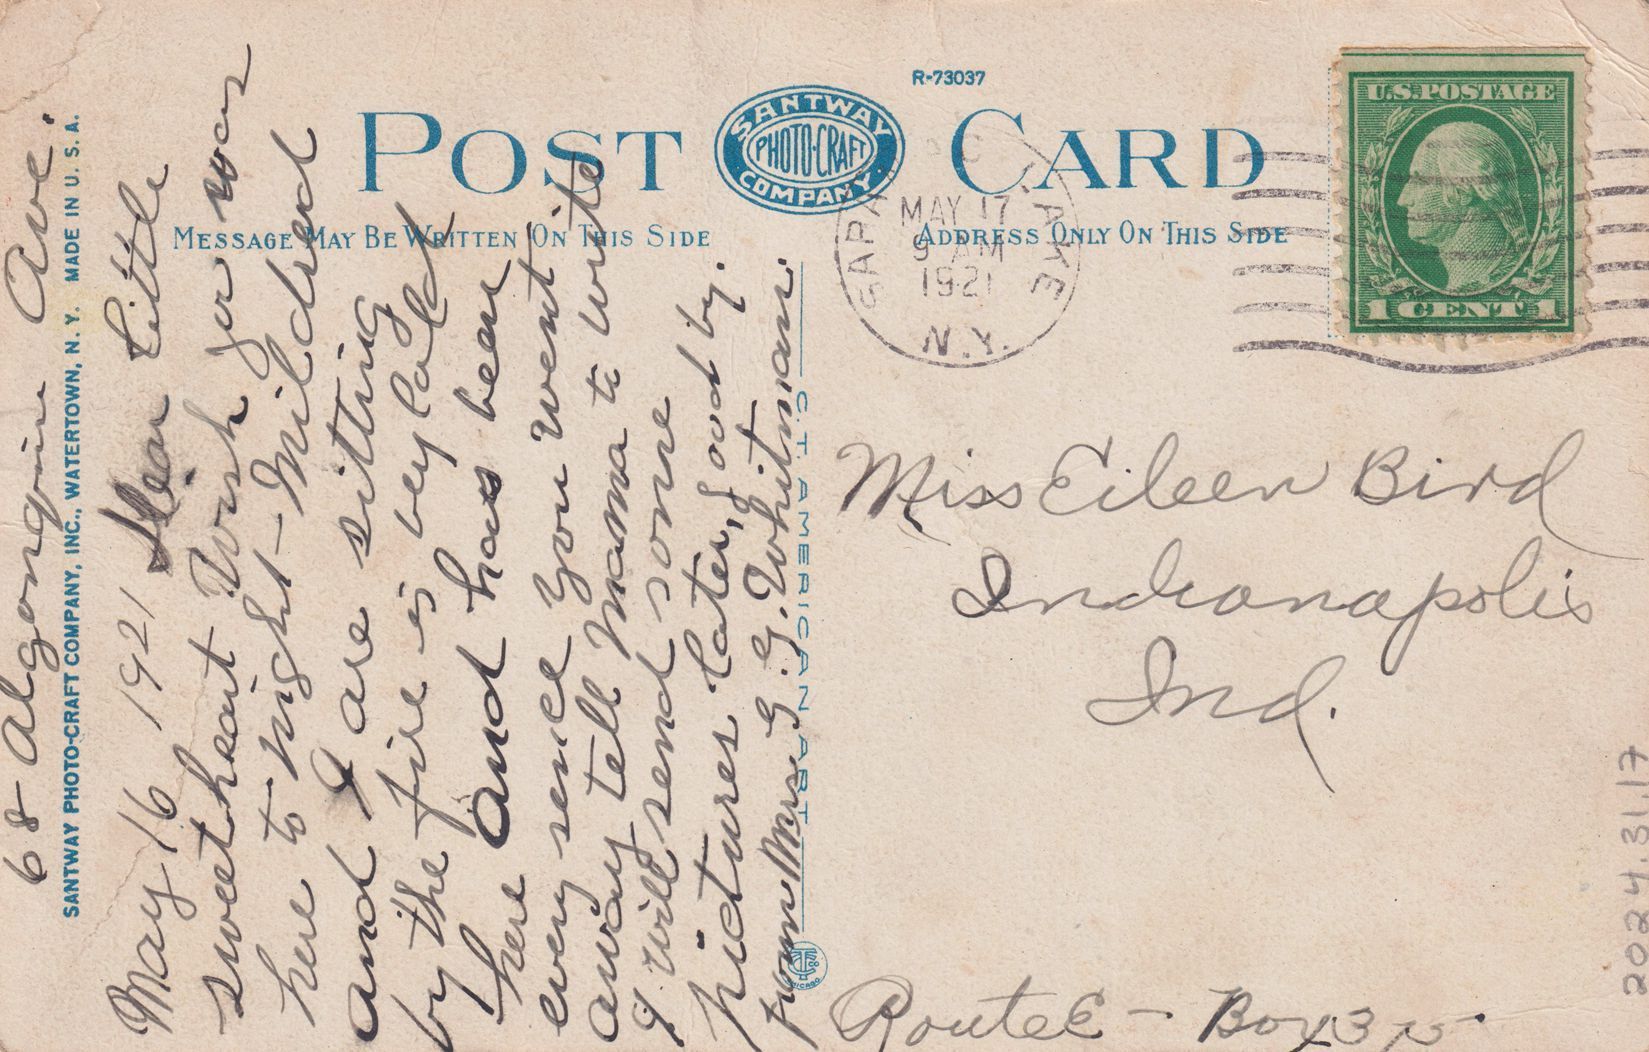 R-73037
POST CARD
SANTWAY
PHOTO-CRAFT
COMPANY.
MESSAGE MAY BE WRITTEN ON THIS SIDE
ADDRESS ONLY ON THIS SIDE
U.S. POSTAGE
1 CENT 1
SARANAC LAKE
MAY 17
9 AM
1921
N.Y.
68 Algonquin Ave.
SANTWAY PHOTO-CRAFT COMPANY, INC., WATERTOWN, N. Y. MADE IN U. S. A.
May 16 1921 Dear Little
sweetheart Wish you was
here to night - Mildred
and I are sitting
by the fire is very cold
here and has been
every sence you went
away tell Mama to write
I will send some
pictures later, good by.
from Mrs G. G. Whitman.
C. T. AMERICAN ART
CHICAGO
Miss Eileen Bird
Indianapolis
Ind.
Route E - Box 35
2024.31.17